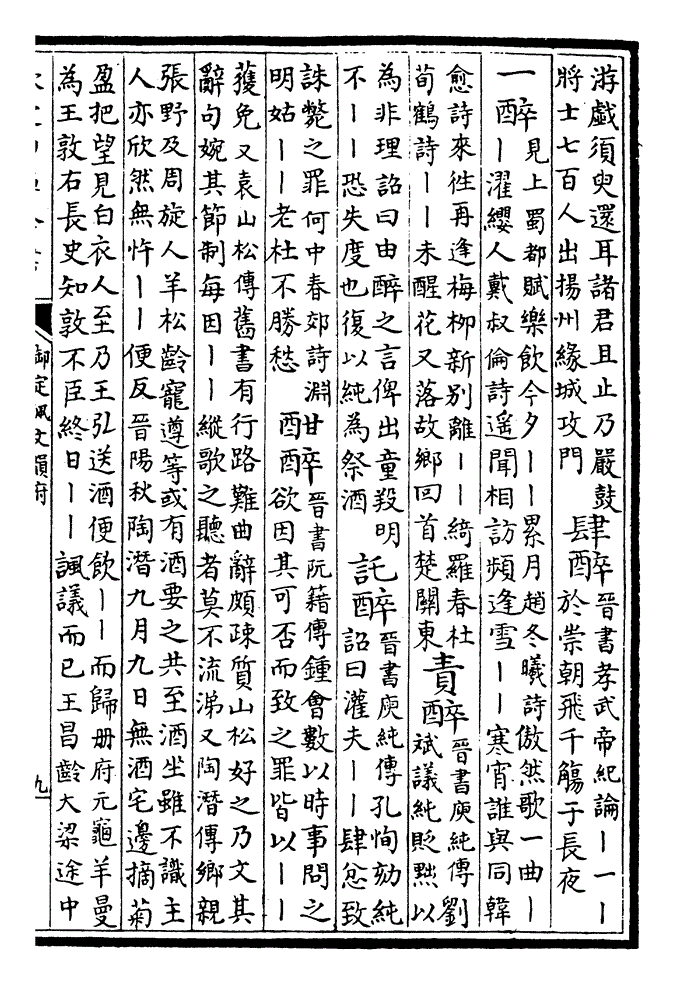 游戯須臾還耳諸君且止乃嚴鼓
將士七百人出揚州緣城攻門
肆醉
晉書孝武帝紀論丨一丨
於崇朝飛千觴于長夜
一醉
見上蜀都賦樂飲今夕丨丨累月趙冬曦詩傲然歌一曲丨
丨濯纓人戴叔倫詩遥聞相訪頻逢雪丨丨寒宵誰與同韓
愈詩來徃再逢梅栁新别離丨丨綺羅春杜
荀鶴詩丨丨未醒花又落故鄉回首楚關東
責醉
晉書庾純傳劉
斌議純貶黜以
為非理詔曰由醉之言俾出童羖明
不丨丨恐失度也復以純為祭酒
託醉
晉書庾純傳孔恂劾純
詔曰灌夫丨丨肆忿致
誅斃之罪何中春郊詩淵
明姑丨丨老杜不勝愁
酣醉
晉書阮籍傳鍾會數以時事問之
欲因其可否而致之罪皆以丨丨
獲免又袁山松傳舊書有行路難曲辭頗疎質山松好之乃文其
辭句婉其節制每因丨丨縱歌之聽者莫不流涕又陶潛傳鄉親
張野及周旋人羊松齡寵遵等或有酒要之共至酒坐雖不識主
人亦欣然無忤丨丨便反晉陽秋陶潛九月九日無酒宅邊摘菊
盈把望見白衣人至乃王弘送酒便飲丨丨而歸册府元龜羊曼
為王敦右長史知敦不臣終日丨丨諷議而已王昌齡大梁途中
御定佩文韻府
九